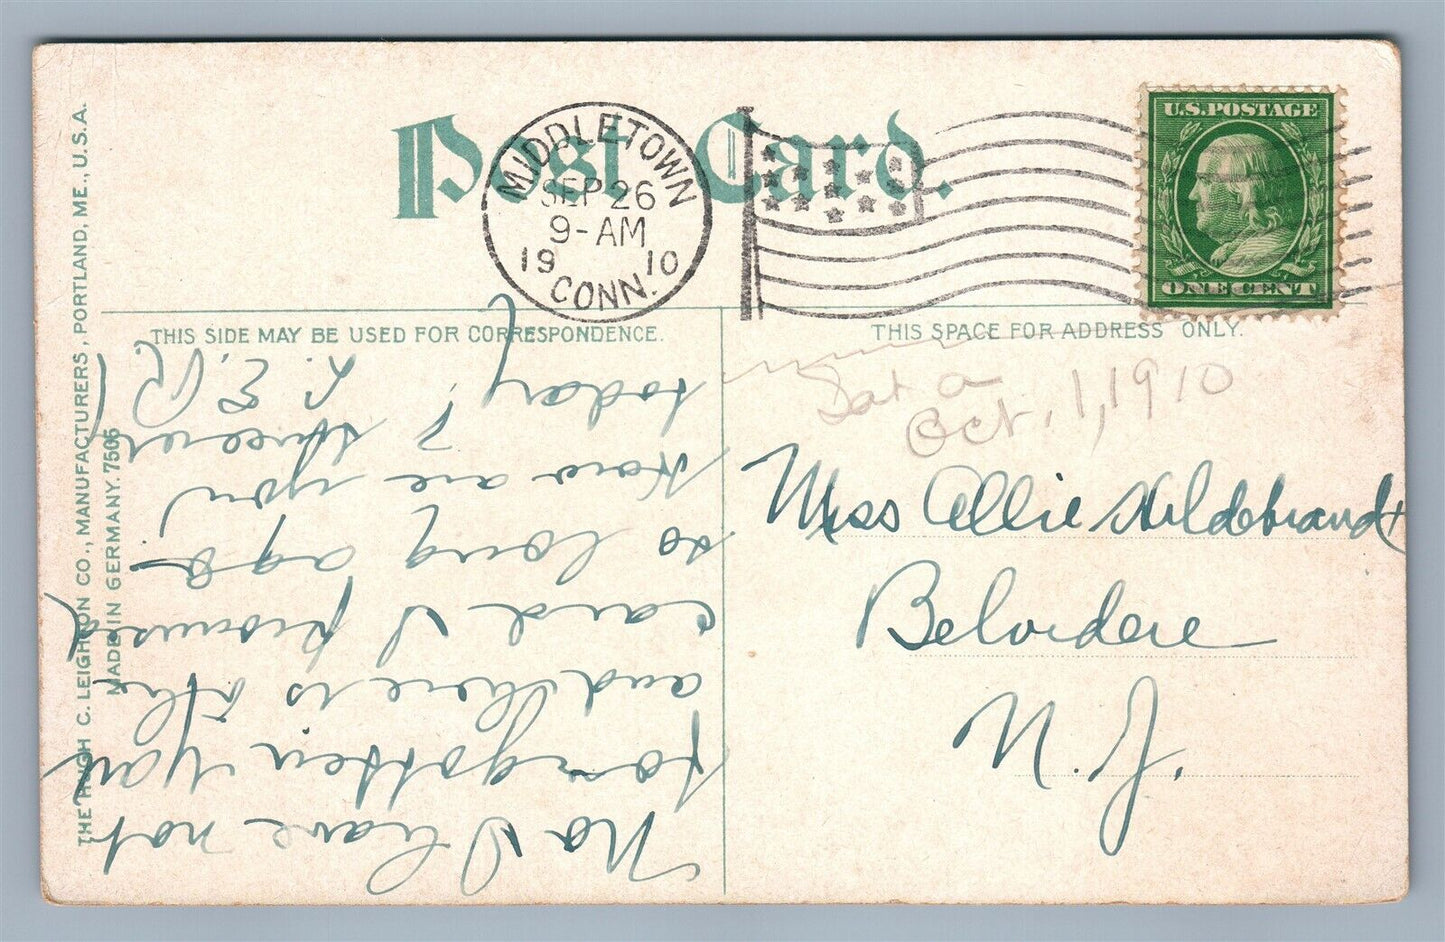 Post Card.
MIDDLETOWN
SEP 26
9-AM
19 10
CONN.
U.S. POSTAGE
ONE CENT
THIS SIDE MAY BE USED FOR CORRESPONDENCE.
THIS SPACE FOR ADDRESS ONLY.
Oct. 1, 1910
Miss Allie Hildebrandt
Belvidere
N. J.
No I have not
forgotten you
and here is the
card I promised
so long ago
How are you
today?
THE HUGH C. LEIGHTON CO., MANUFACTURERS, PORTLAND, ME., U.S.A.
MADE IN GERMANY. 7505